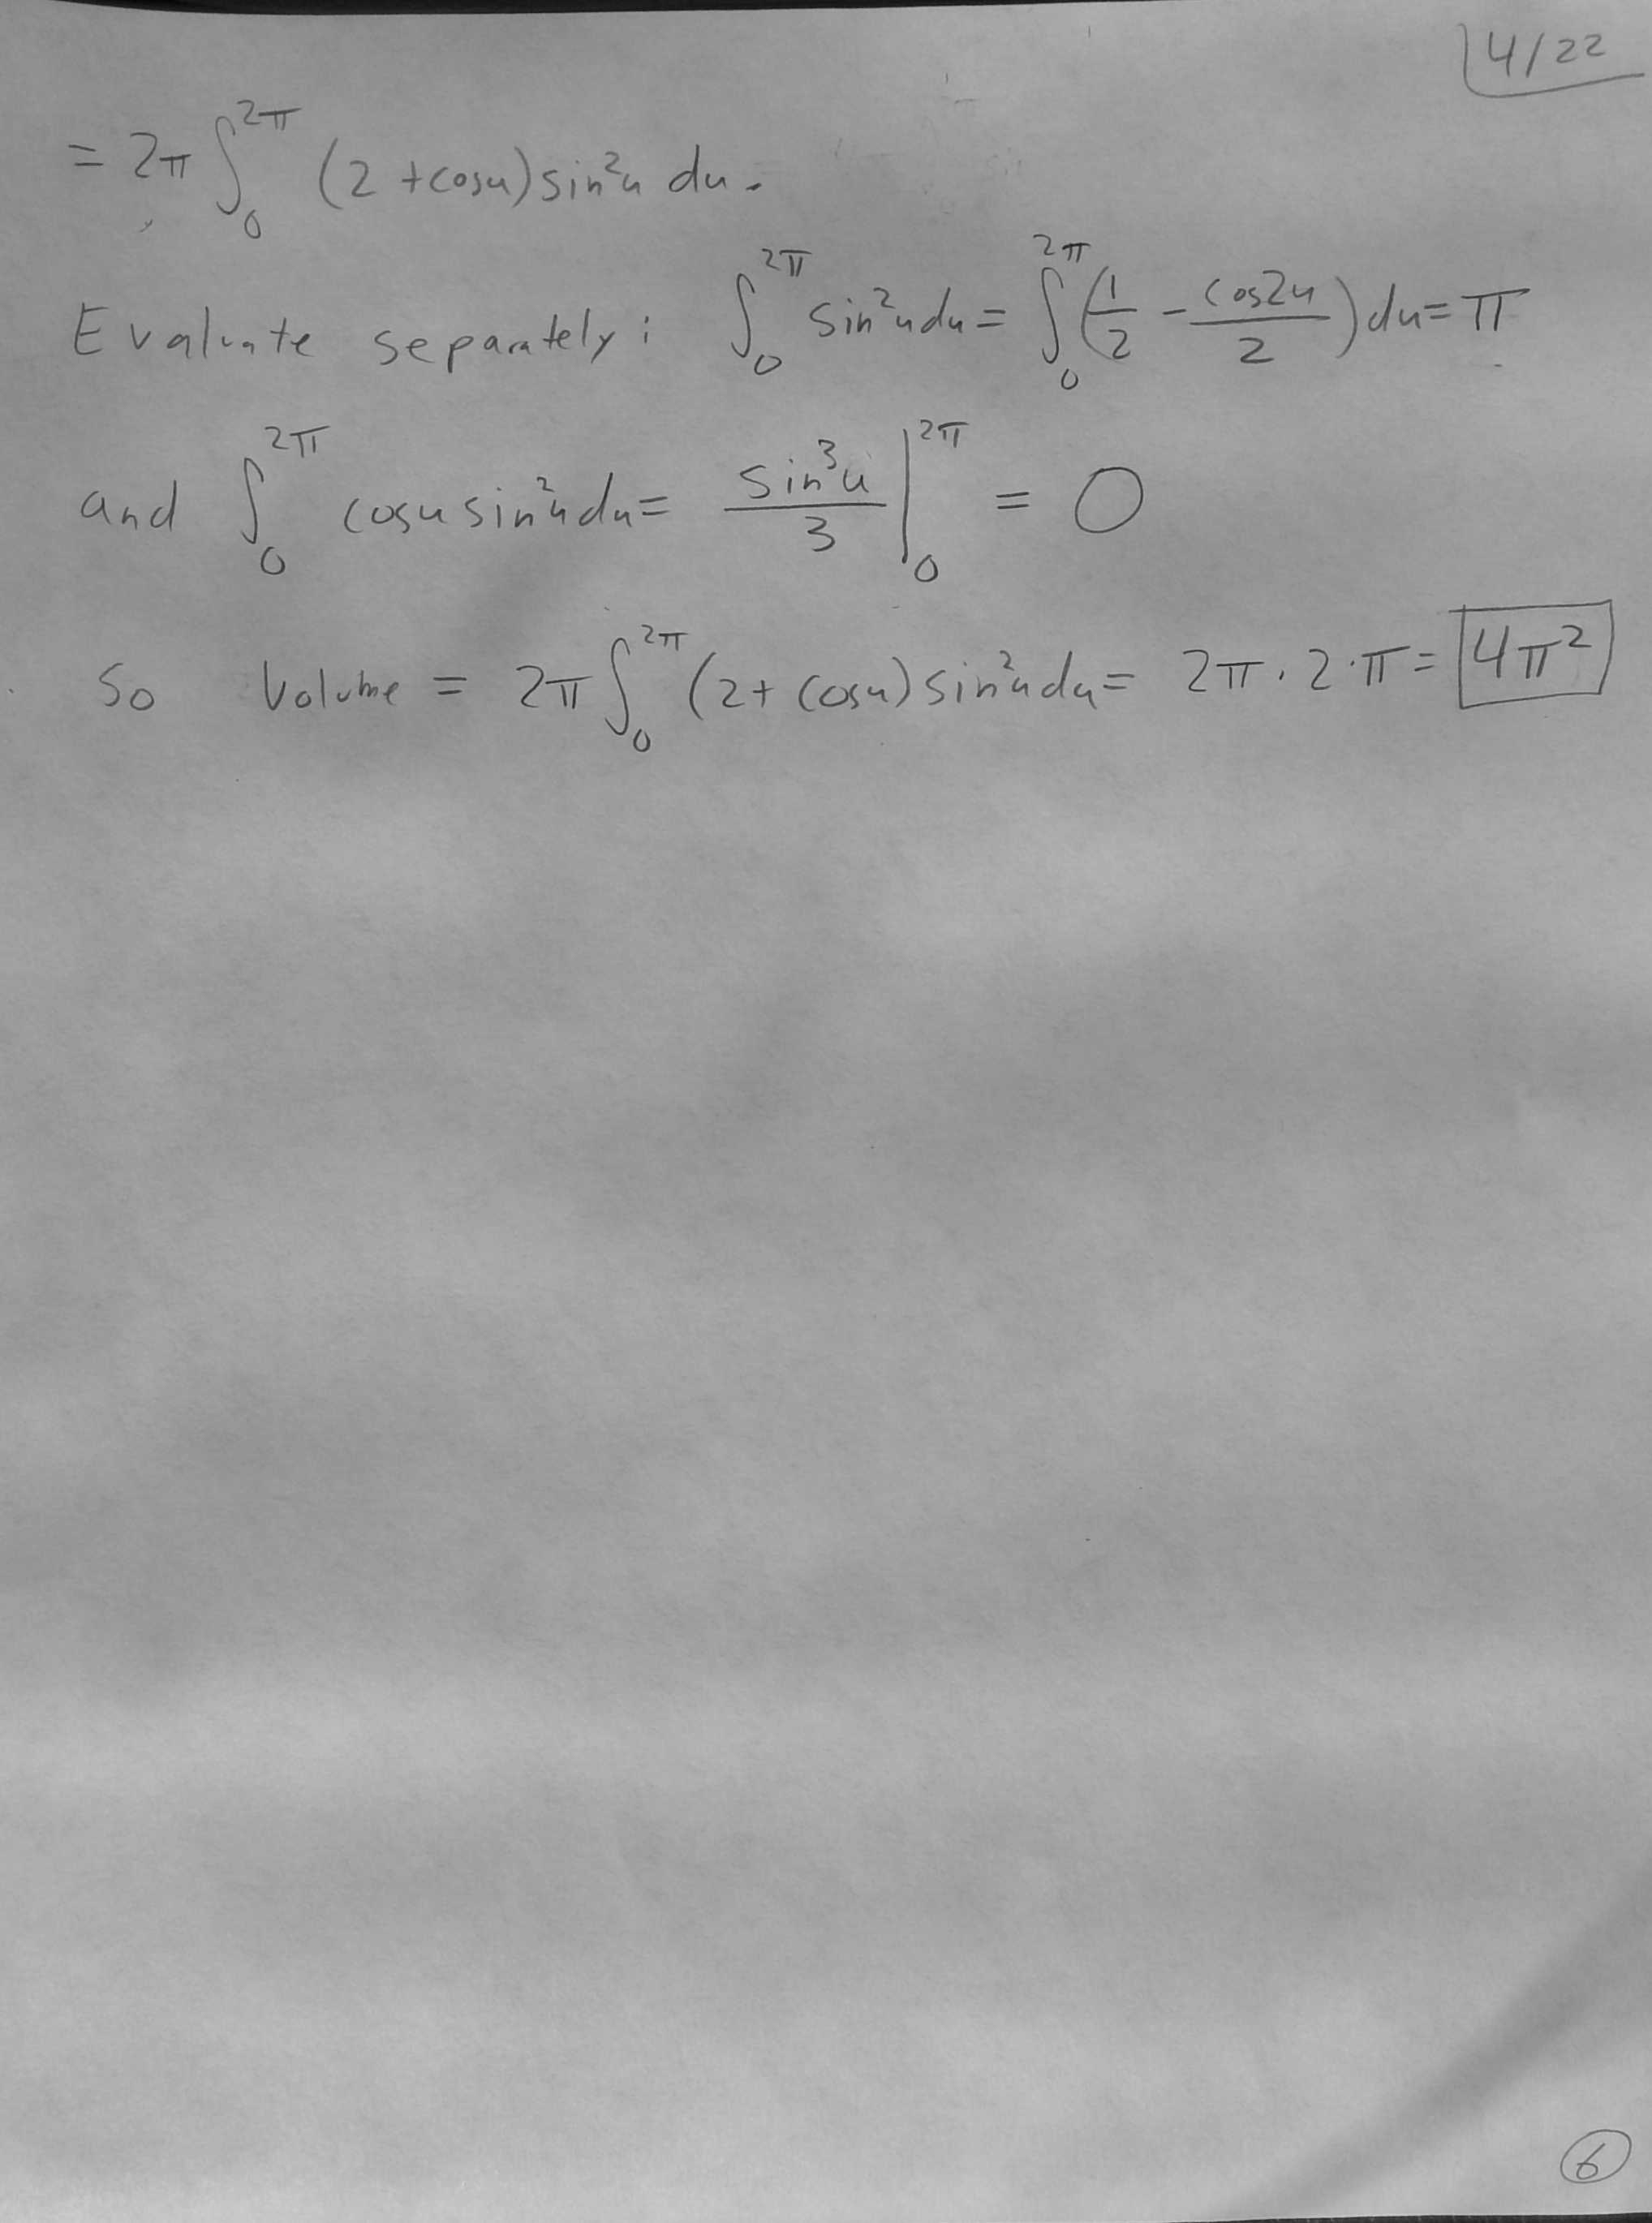 4/22
= 2π ∫₀^2π (2 + cosu) sin²u du.
Evaluate separately: ∫₀^2π sin²u du = ∫₀^2π (1/2 - cos2u/2) du = π
and ∫₀^2π cosu sin²u du = sin³u/3 |₀^2π = 0
So Volume = 2π ∫₀^2π (2 + cosu) sin²u du = 2π · 2 · π = 4π²
6